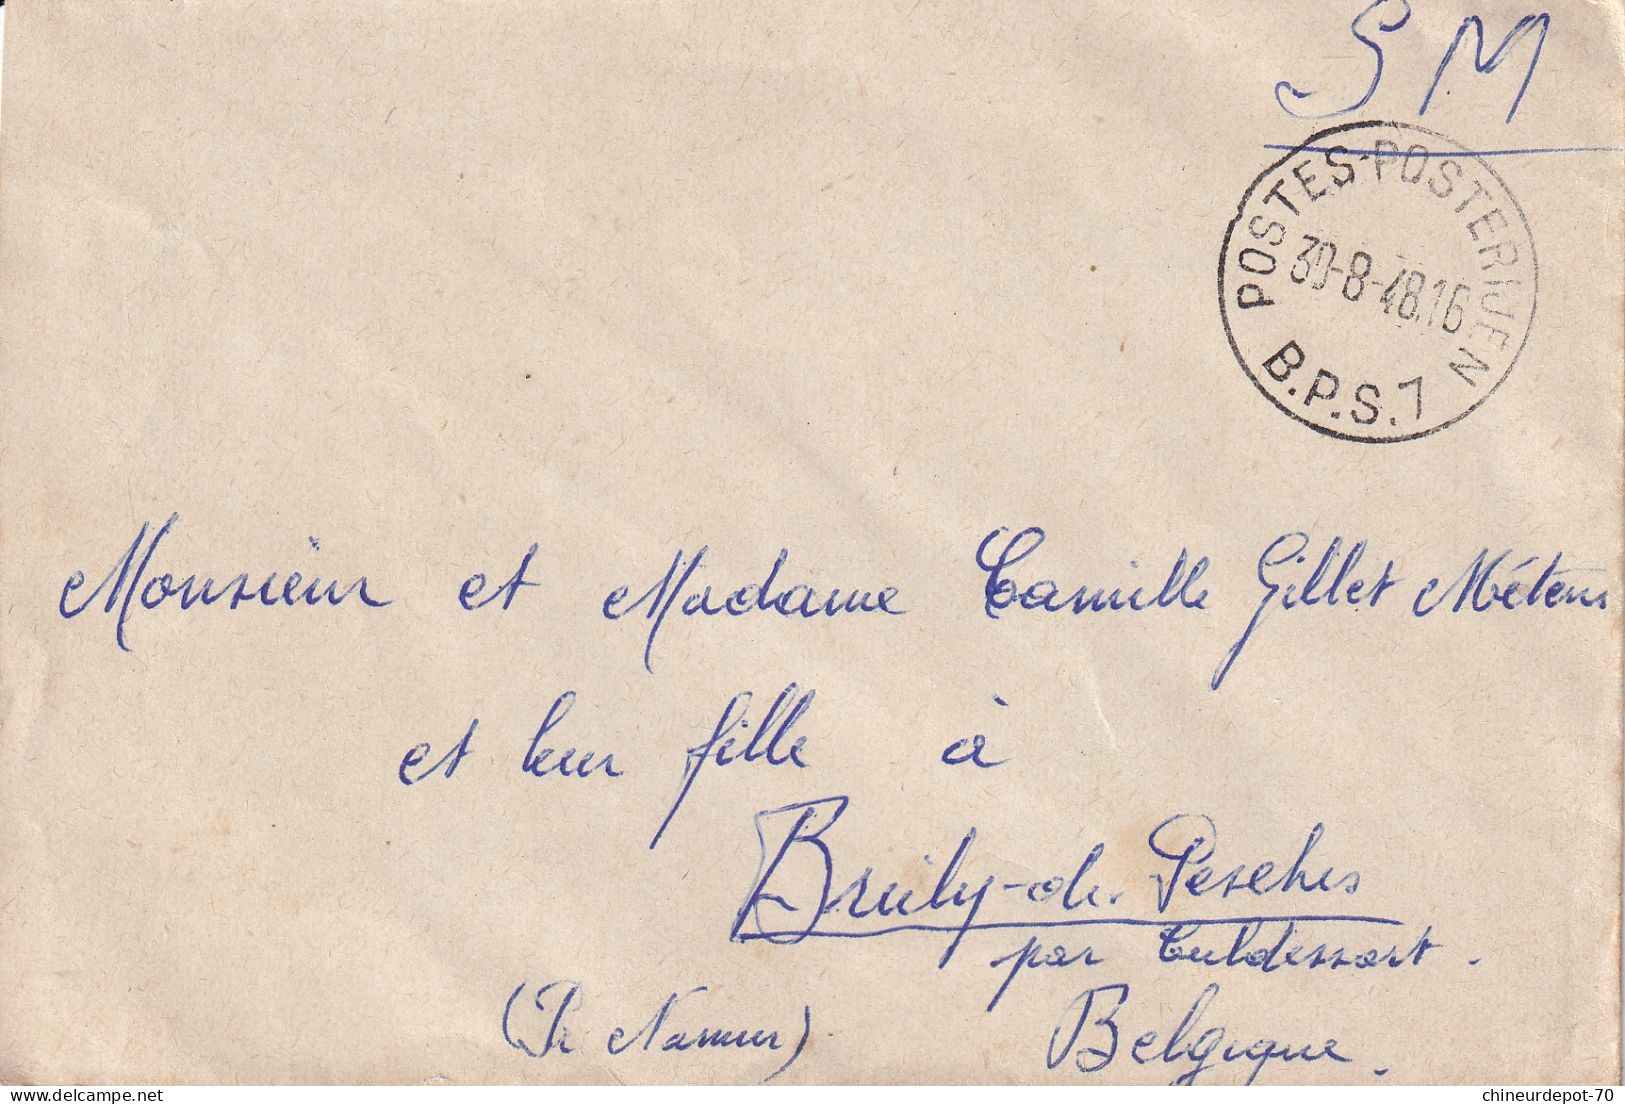 SM
POSTES-POSTERIJEN
30-8-48.16
B.P.S.7
Monsieur et Madame Camille Gillet Méteur
et leur fille à
Bruly-de-Pesches
par Culdessart.
(Pr Namur)
Belgique.
chineurdepot-70